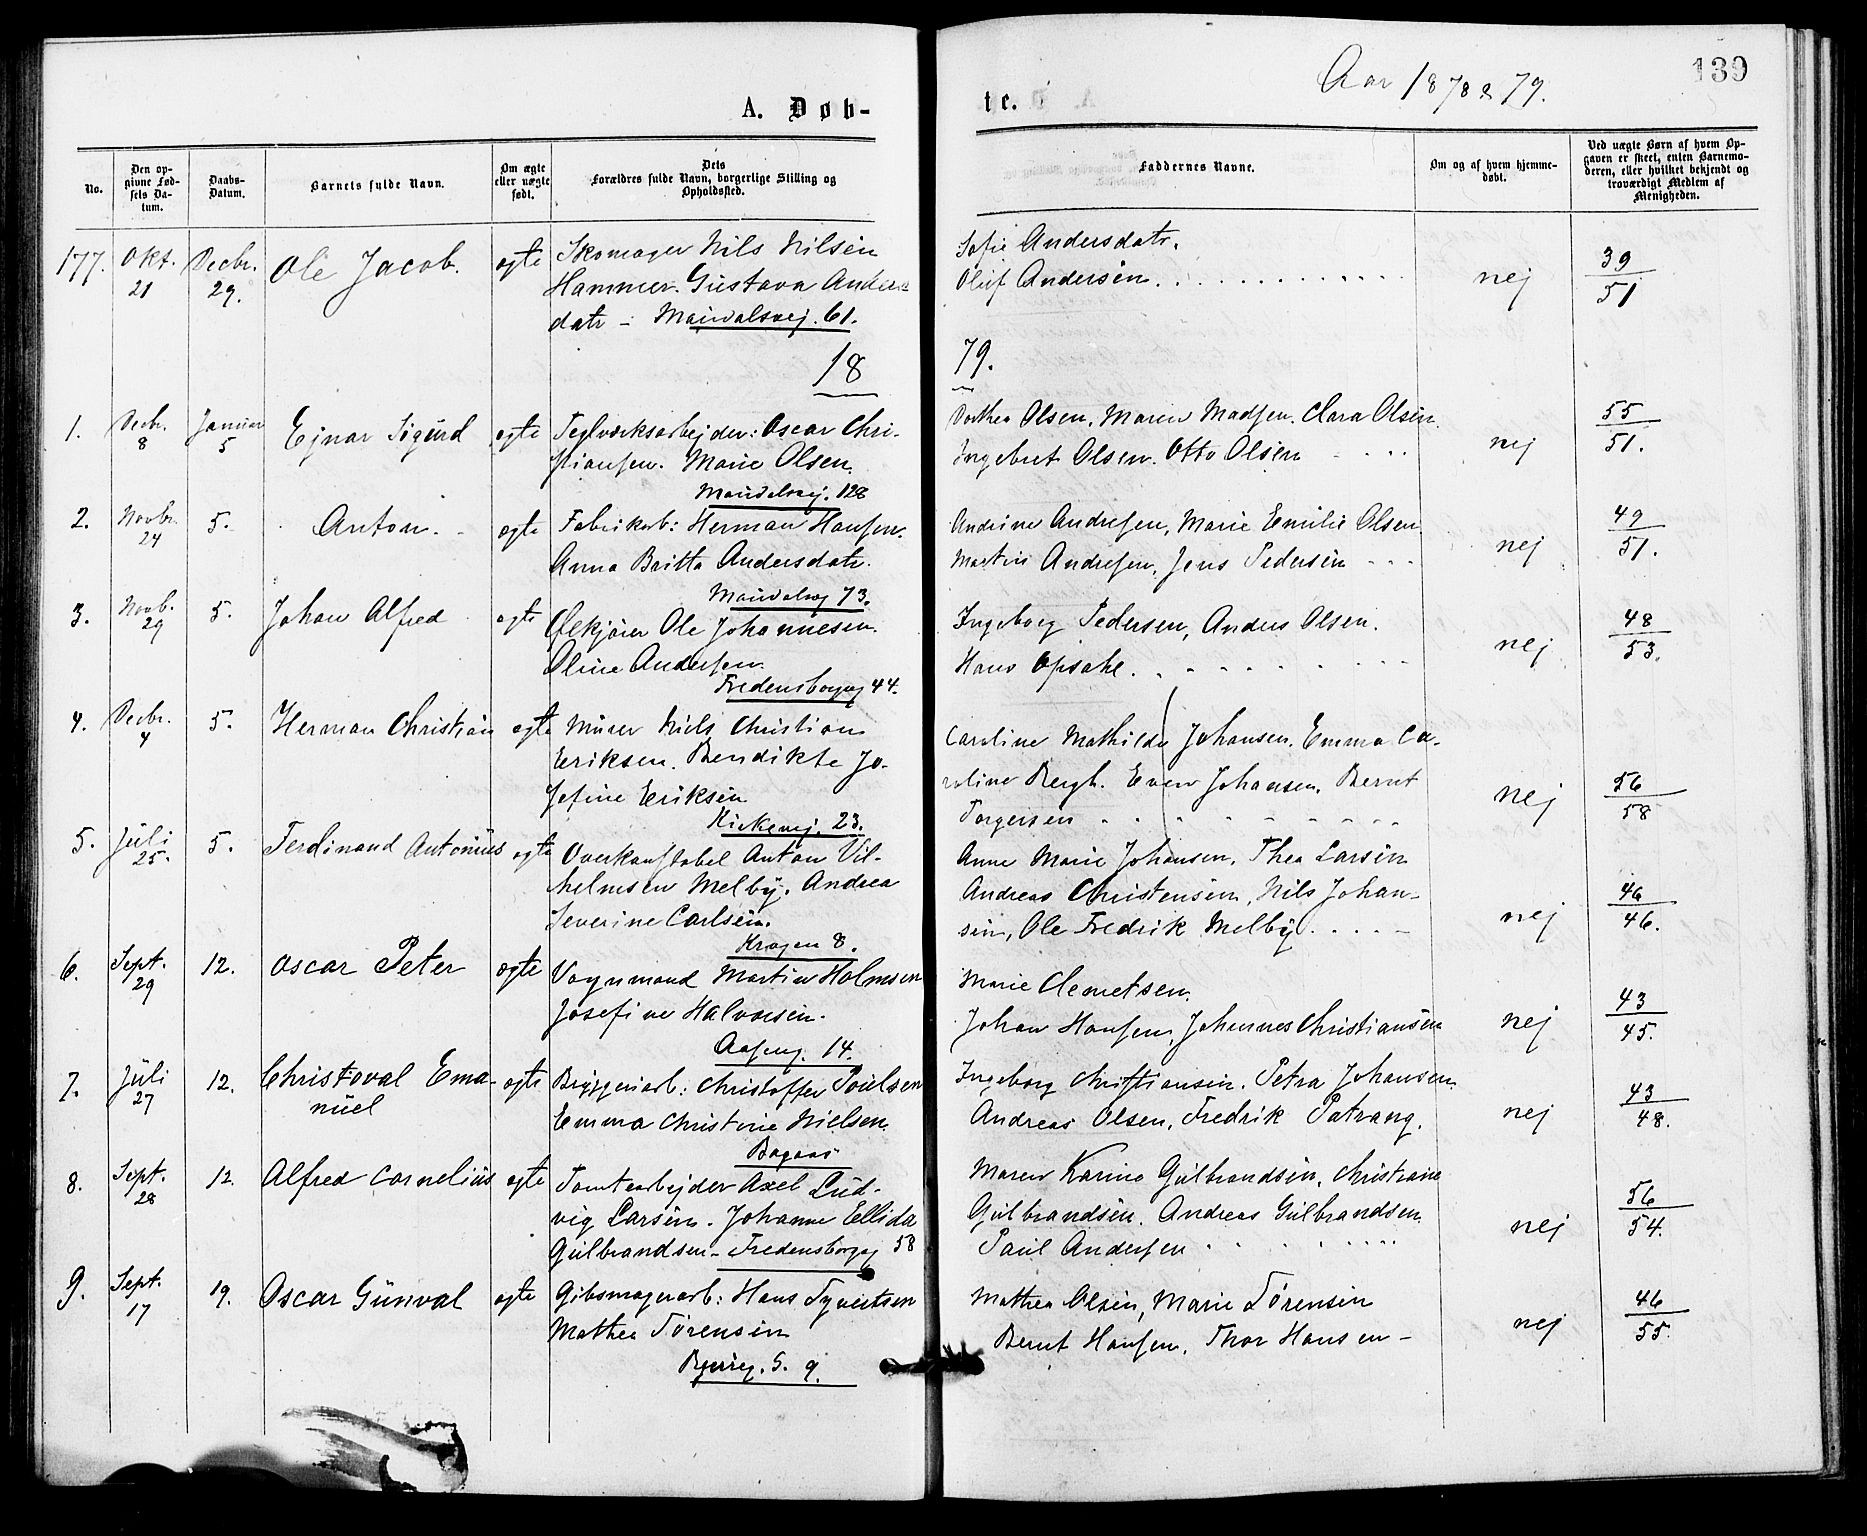 A. Døb-
te.
Aar 1878 & 79.
139
No.
Den op-
givne Fød-
sels Da-
tum.
Daabs-
Datum.
Barnets fulde Navn.
Om ægte
eller uægte
født.
Dets
Forældres fulde Navn, borgerlige Stilling og
Opholdssted.
Faddernes Navne.
Om og af hvem hjemme-
døbt.
Ved uægte Børn af hvem Op-
gaven er skeet, enten Barnemo-
deren, eller hvilket bekjendt og
troværdigt Medlem af
Menigheden.
177. Okt. 21 Decbr. 29. Ole Jacob. ægte
Skomager Nils Nilsen
Hammer. Gustava Anders
datr - Maridalsvej. 61.
Sofie Andersdatr.
Oluf Andersen
nej
39
51
18
79.
1. Decbr. 8 Januar 5 Ejnar Sigurd ægte
Teglværksarbejder: Oscar Chri-
stiansen. Marie Olsen.
Maridalsvej. 128
Dorthea Olsen, Maren Madsen. Clara Olsen.
Ingebret Olsen. Otto Olsen
nej
55
51.
2. Novbr. 24 5. Anton. ægte
Fabrikarb: Herman Hansen.
Anna Britta Andersdatr.
Maridalsvej 73.
Andrine Andresen, Marie Emilie Olsen
Martin Andresen, Jens Pedersen
nej
49
51.
3. Novb. 29 5. Johan Alfred ægte
Ølkjører Ole Johannesen.
Oline Andersen.
Fredensborgvej 44.
Ingeborg Pedersen, Anders Olsen.
Hans Opsahl.
nej
48
53.
4. Decbr. 4 5. Herman Christian ægte
Murer Niels Christian
Eriksen. Bendikte Jo-
sefine Eriksen
Kirkevej. 23.
Caroline Mathilde Johansen. Emma Ca-
roline Bergh. Even Johansen, Bernt
Torgersen
nej
56
58
5. Juli 25. 5. Ferdinand Antonius ægte
Overkonstabel Anton Vil-
helmsen Melby. Andrea
Severine Carlsen.
Krogen 8.
Anne Marie Johansen, Thea Larsen
Andreas Christensen, Nils Johan-
sen, Ole Fredrik Melby
nej
46
46.
6. Sept. 29 12. Oscar Peter ægte
Vognmand Martin Holmsen
Josefine Halvorsen.
Aaseng. 14.
Marie Clemetsen.
Johan Hansen, Johannes Christiansen
nej
43
45.
7. Juli 27 12. Christoval Ema-
nuel ægte
Bryggeriarb: Christoffer Poulsen
Emma Christine Nielsen.
Bagaas
Ingeborg Christiansen. Petra Johansen.
Andreas Olsen, Fredrik Patrang.
nej
43
48.
8. Sept. 28 12. Alfred Cornelius ægte
Tomtearbejder Axel Lud-
vig Larsen. Johanne Ellida
Gulbrandsen - Fredensborgvej 58
Maren Karine Gulbrandsen, Christiane
Gulbrandsen. Andreas Gulbrandsen
Paul Andersen
nej
56
54.
9. Sept. 17 19. Oscar Gunval ægte
Gibsmagerarb: Hans Syvertsen
Mathea Sørensen
S. 9.
Mathea Olsen, Marie Sørensen
Bernt Hansen, Thor Hansen -
nej
46
55.